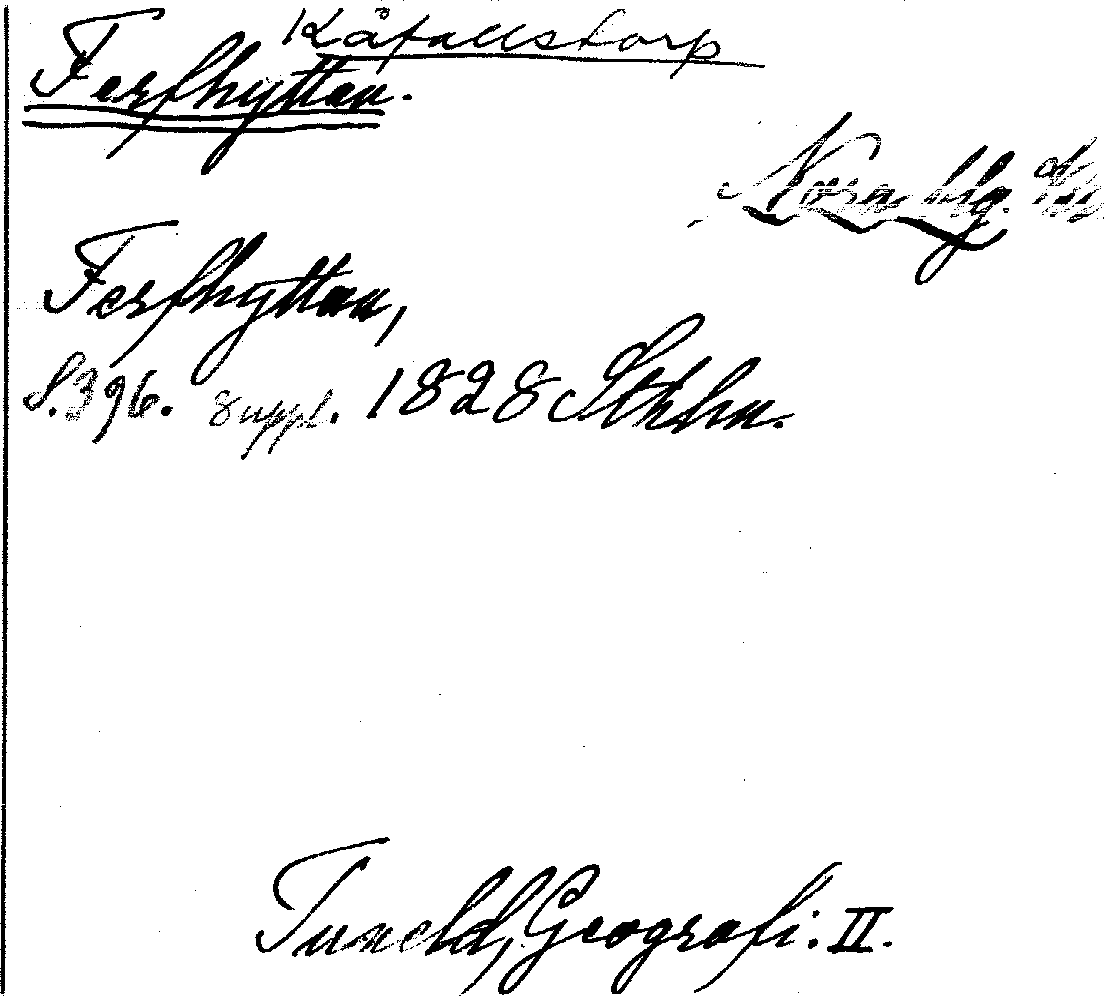 Kåfallstorp
Fershyttan.
Nora blg.
Fershyttan,
S. 396. Suppl. 1828 Sthlm.
Tuneld, Geografi. II.